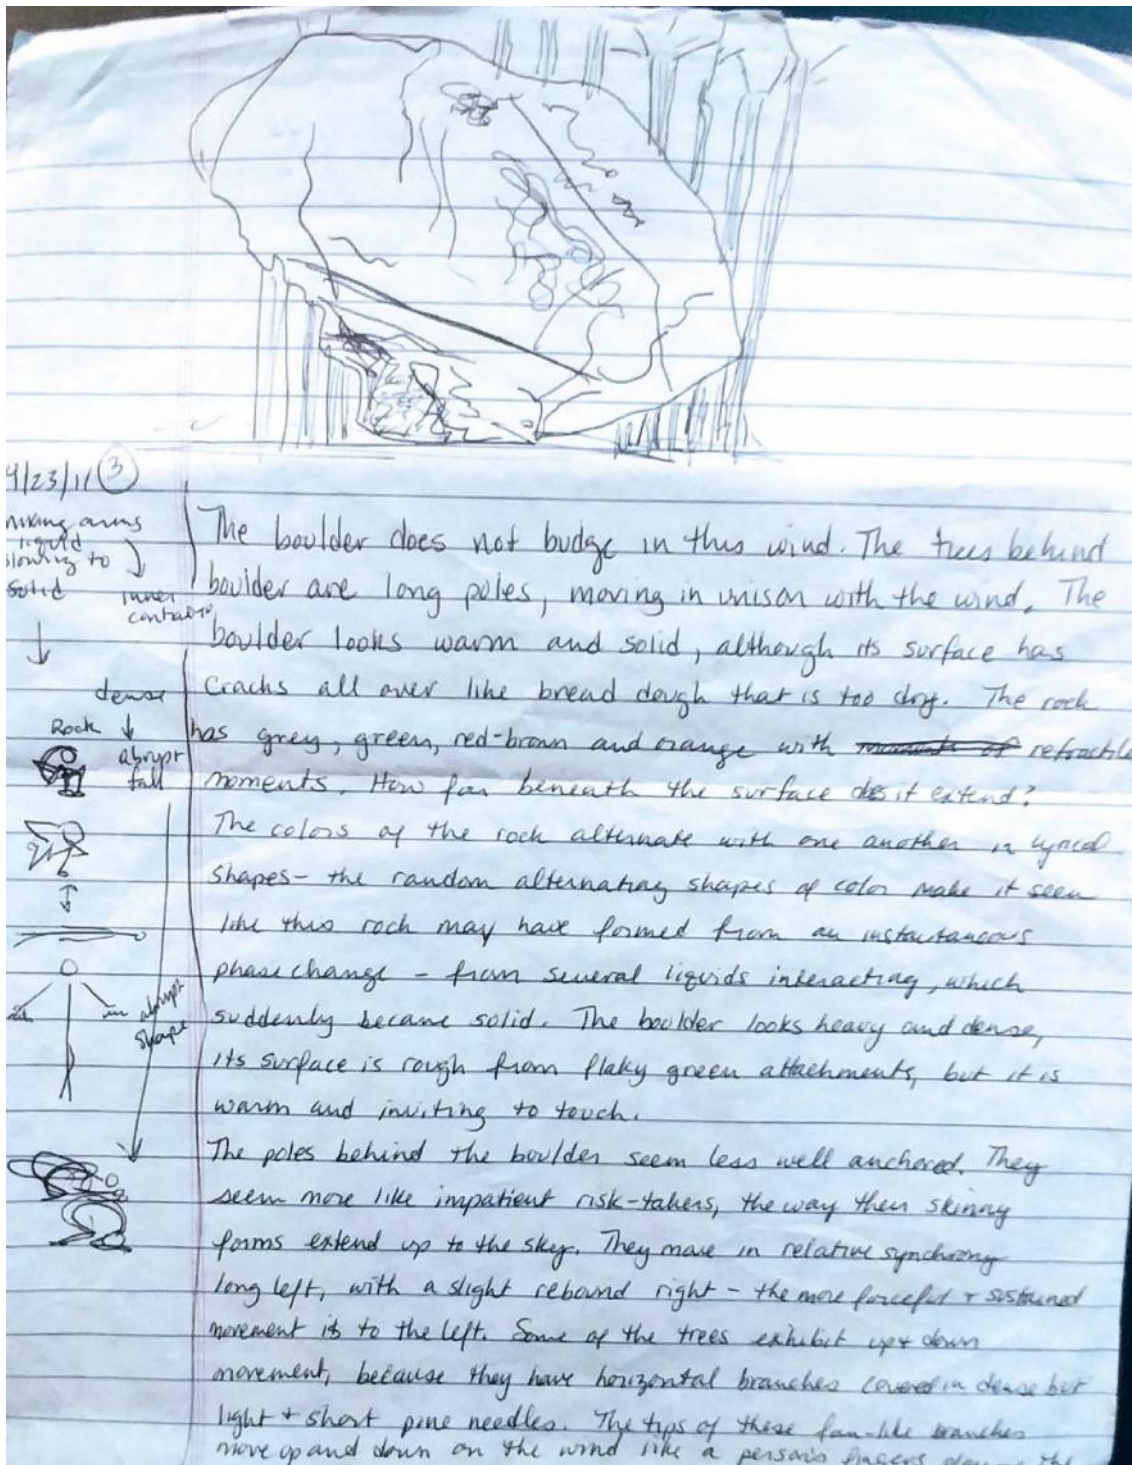 4/23/11 3
mixing arms
liquid
slowing to
solid
inner
dense
Rock
abrupt
fall
abrupt
shape
The boulder does not budge in this wind. The trees behind
boulder are long poles, moving in unison with the wind. The
boulder looks warm and solid, although its surface has
cracks all over like bread dough that is too dry. The rock
has grey, green, red-brown and orange with refractile
moments. How far beneath the surface does it extend?
The colors of the rock alternate with one another in lyrical
shapes - the random alternating shapes of color make it seem
like this rock may have formed from an instantaneous
phase change - from several liquids interacting, which
suddenly became solid. The boulder looks heavy and dense,
its surface is rough from flaky green attachments, but it is
warm and inviting to touch.
The poles behind the boulder seem less well anchored. They
seem more like impatient risk-takers, the way their skinny
forms extend up to the sky. They move in relative synchrony
long left, with a slight rebound right - the more forceful + sustained
movement is to the left. Some of the trees exhibit up + down
movement, because they have horizontal branches covered in dense but
light + short pine needles. The tips of these fan-like branches
move up and down on the wind like a person's fingers the